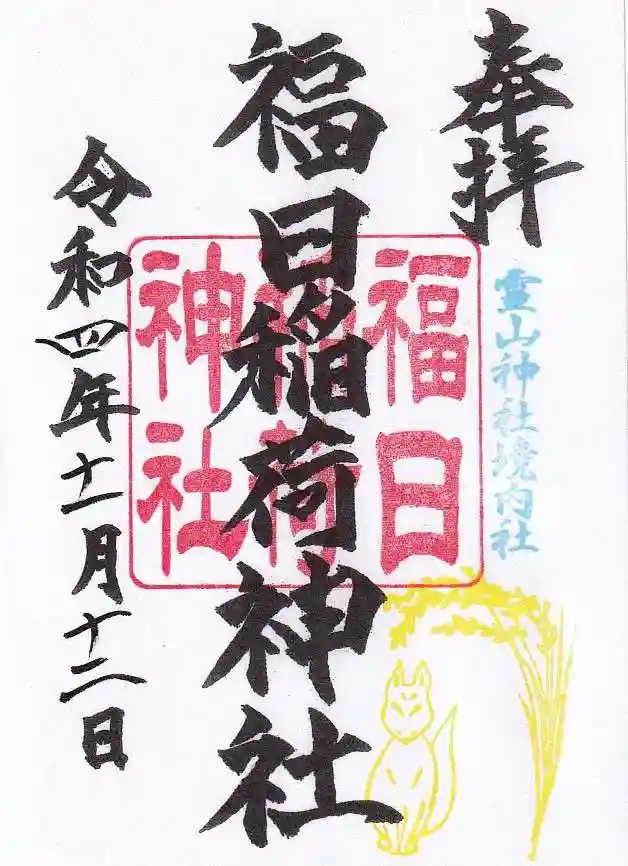 奉拝
霊山神社境内社
福日稲荷神社
福日
稲荷
神社
令和四年十一月十二日